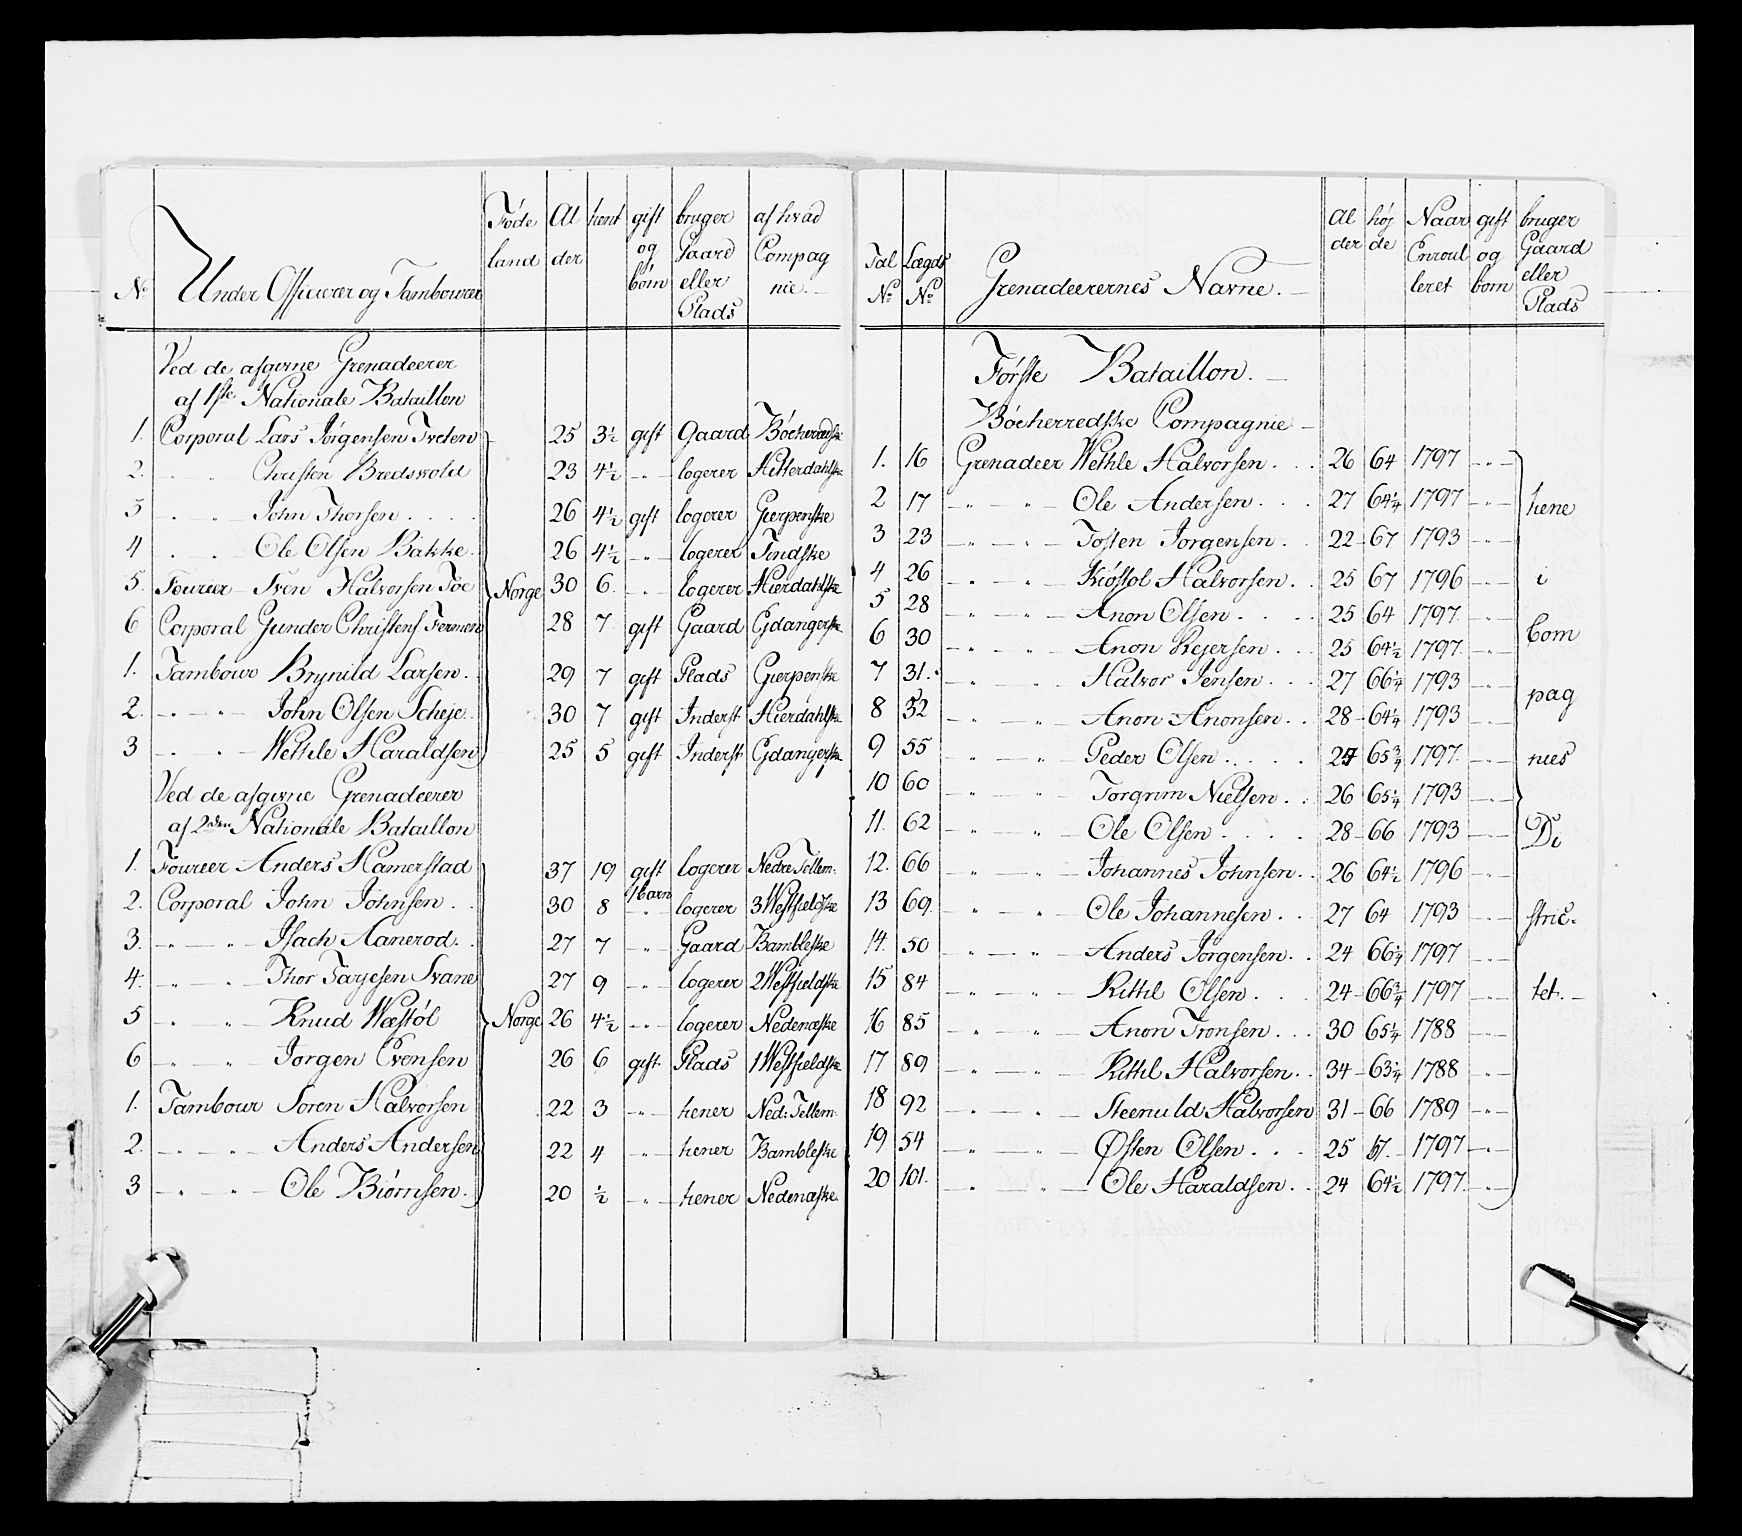 No | Under Officierer og Tambourer | Føde land | Al der | tient | gift og børn | bruger Gaard eller Plads | af hvad Compag nie.
Ved de afgivne Grenadeerer
af 1ste Nationale Bataillon
1. Corporal Lars Jørgensen Treten | 25 | 3½ | gift | Gaard | Bøeherredske
2. - " - Christen Bredsvold | 23 | 4½ | - " - | logerer | Hitterdahlske
3 - " - John Thorsen | 26 | 4½ | gift | logerer | Gierpenske
4 - " - Ole Olsen Bakke | 26 | 4½ | - " - | logerer | Tindske
5. Foureer Sven Halvorsen Toe | Norge | 30 | 6 | - " - | logerer | Hierdahlske
6 Corporal Gunder Christens Fermen | 28 | 7 | gift | Gaard | Ejdangerske
1. Tambour Brynild Larsen | 29 | 7 | gift | Plads | Gierpenske
2. - " - John Olsen Scheje | 30 | 7 | gift | Inderst | Hierdahlske
3 - " - Wethle Haraldsen | 25 | 5 | gift | Inderst | Ejdangerske
Ved de afgivne Grenadeerer
af 2den Nationale Bataillon
1. Foureer Anders Hamerstad | 37 | 19 | gift 1 barn | logerer | Nedre Tellem:
2. Corporal John Johnsen | 30 | 8 | - " - | logerer | 3 Westfieldske
3. - " - Isach Aanerod | 27 | 7 | - " - | Gaard | Bambleske
4. - " - Thor Tarjesen Svane | 27 | 9 | - " - | logerer | 2 Westfieldske
5 - " - Knud Wæstøl | Norge | 26 | 4½ | - " - | logerer | Nedenæske
6 - " - Jørgen Evensen | 26 | 6 | gift | Plads | 1 Westfieldske
1. Tambour Søren Halvorsen | 22 | 3 | - " - | tiener | Ned: Tellem:
2. - " - Anders Andersen | 22 | 4 | - " - | tiener | Bambleske
3 - " - Ole Biørnsen | 20 | ½ | - " - | tiener | Nedenæske
Tal No | Lægds No | Grenadeerernes Navne. | Al der | høj de | Naar Enroul leret | gift og børn | bruger Gaard eller Plads
Første Bataillon.
Bøeherredske Compagnie
1. | 16 | Grenadeer Wethle Halvorsen | 26 | 64 | 1797 | - " -
2 | 17 | - " - Ole Andersen | 27 | 64¼ | 1797 | - " - | tiene
3 | 23 | - " - Tosten Jørgensen | 22 | 67 | 1793 | - " -
4 | 26 | - " - Kiøstol Halvorsen | 25 | 67 | 1796 | - " - | i
5 | 28 | - " - Anon Olsen | 25 | 64 | 1797 | - " -
6 | 30 | - " - Anon Rejersen | 25 | 64½ | 1797 | - " - | Com
7 | 31 | - " - Halvor Jensen | 27 | 66¼ | 1793 | - " -
8 | 32 | - " - Anon Anonsen | 28 | 64¼ | 1793 | - " - | pag
9 | 55 | - " - Peder Olsen | 27 | 65¾ | 1797 | - " - | nies
10 | 60 | - " - Torgrim Nielsen | 26 | 65¼ | 1793 | - " -
11. | 62 | - " - Ole Olsen | 28 | 66 | 1793 | - " - | Di
12. | 66 | - " - Johannes Johnsen | 26 | 64½ | 1796 | - " -
13 | 69 | - " - Ole Johannesen | 27 | 64 | 1793 | - " - | stric-
14. | 50 | - " - Anders Jørgensen | 24 | 66¼ | 1797 | - " -
15 | 84 | - " - Kittil Olsen | 24 | 66¾ | 1797 | - " - | tet.
16 | 85 | - " - Anon Tronsen | 30 | 65¼ | 1788 | - " -
17 | 89 | - " - Kittil Halvorsen | 34 | 63¼ | 1788 | - " -
18 | 92 | - " - Steenuld Halvorsen | 31 | 66 | 1789 | - " -
19 | 54 | - " - Østen Olsen | 25 | 1797 | - " -
20 | 101. | - " - Ole Haraldsen | 24 | 64½ | 1797 | - " -